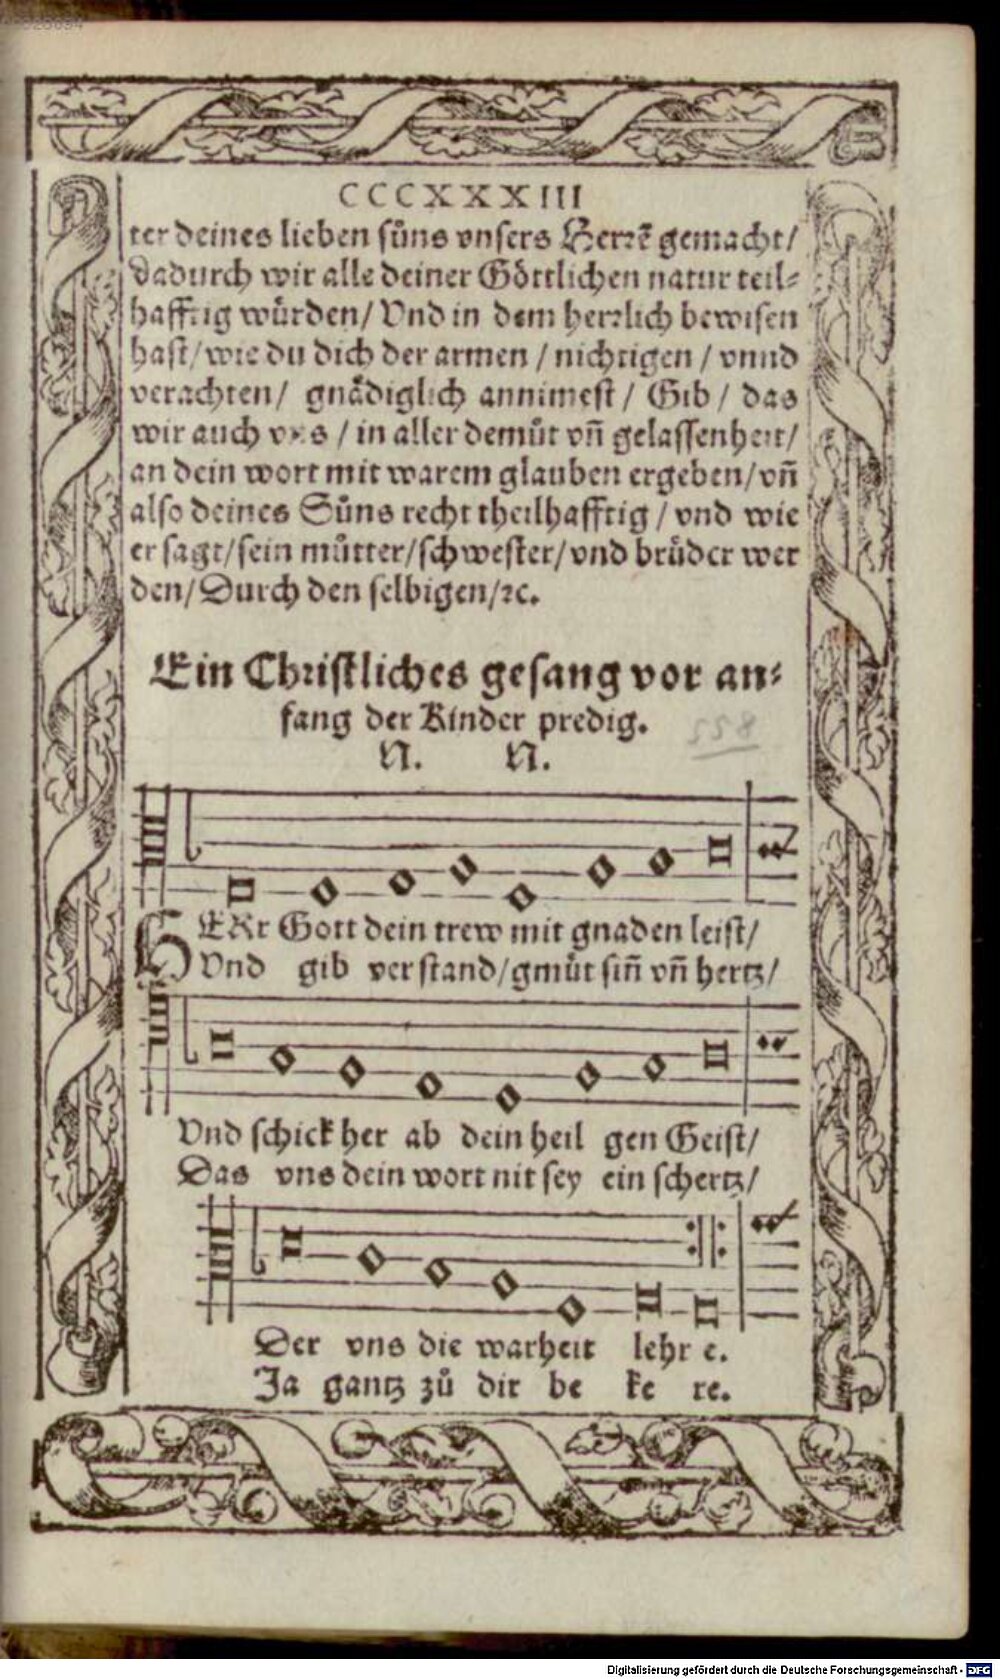 CCCXXXIII
ter deines lieben sůns vnsers Herrẽ gemacht/
dadurch wir alle deiner Göttlichen natur teil⸗
hafftig würden/ Vnd in dem herrlich bewisen
hast/ wie du dich der armen / nichtigen / vnnd
verachten/ gnädiglich annimest / Gib / das
wir auch vns / in aller demůt vñ gelassenheit/
an dein wort mit warem glauben ergeben/ vñ
also deines Sůns recht theilhafftig / vnd wie
er sagt/ sein můtter/ schwester/ vnd brůder wer
den/ Durch den selbigen/ ꝛc.
Ein Christliches gesang vor an⸗
fang der Kinder predig.
N. N.
HERr Gott dein trew mit gnaden leist/
Vnd gib verstand/ gmůt siñ vñ hertz/
Vnd schick her ab dein heil gen Geist/
Das vns dein wort nit sey ein schertz/
Der vns die warheit lehr e.
Ja gantz zů dir be ke re.
Digitalisierung gefördert durch die Deutsche Forschungsgemeinschaft - DFG